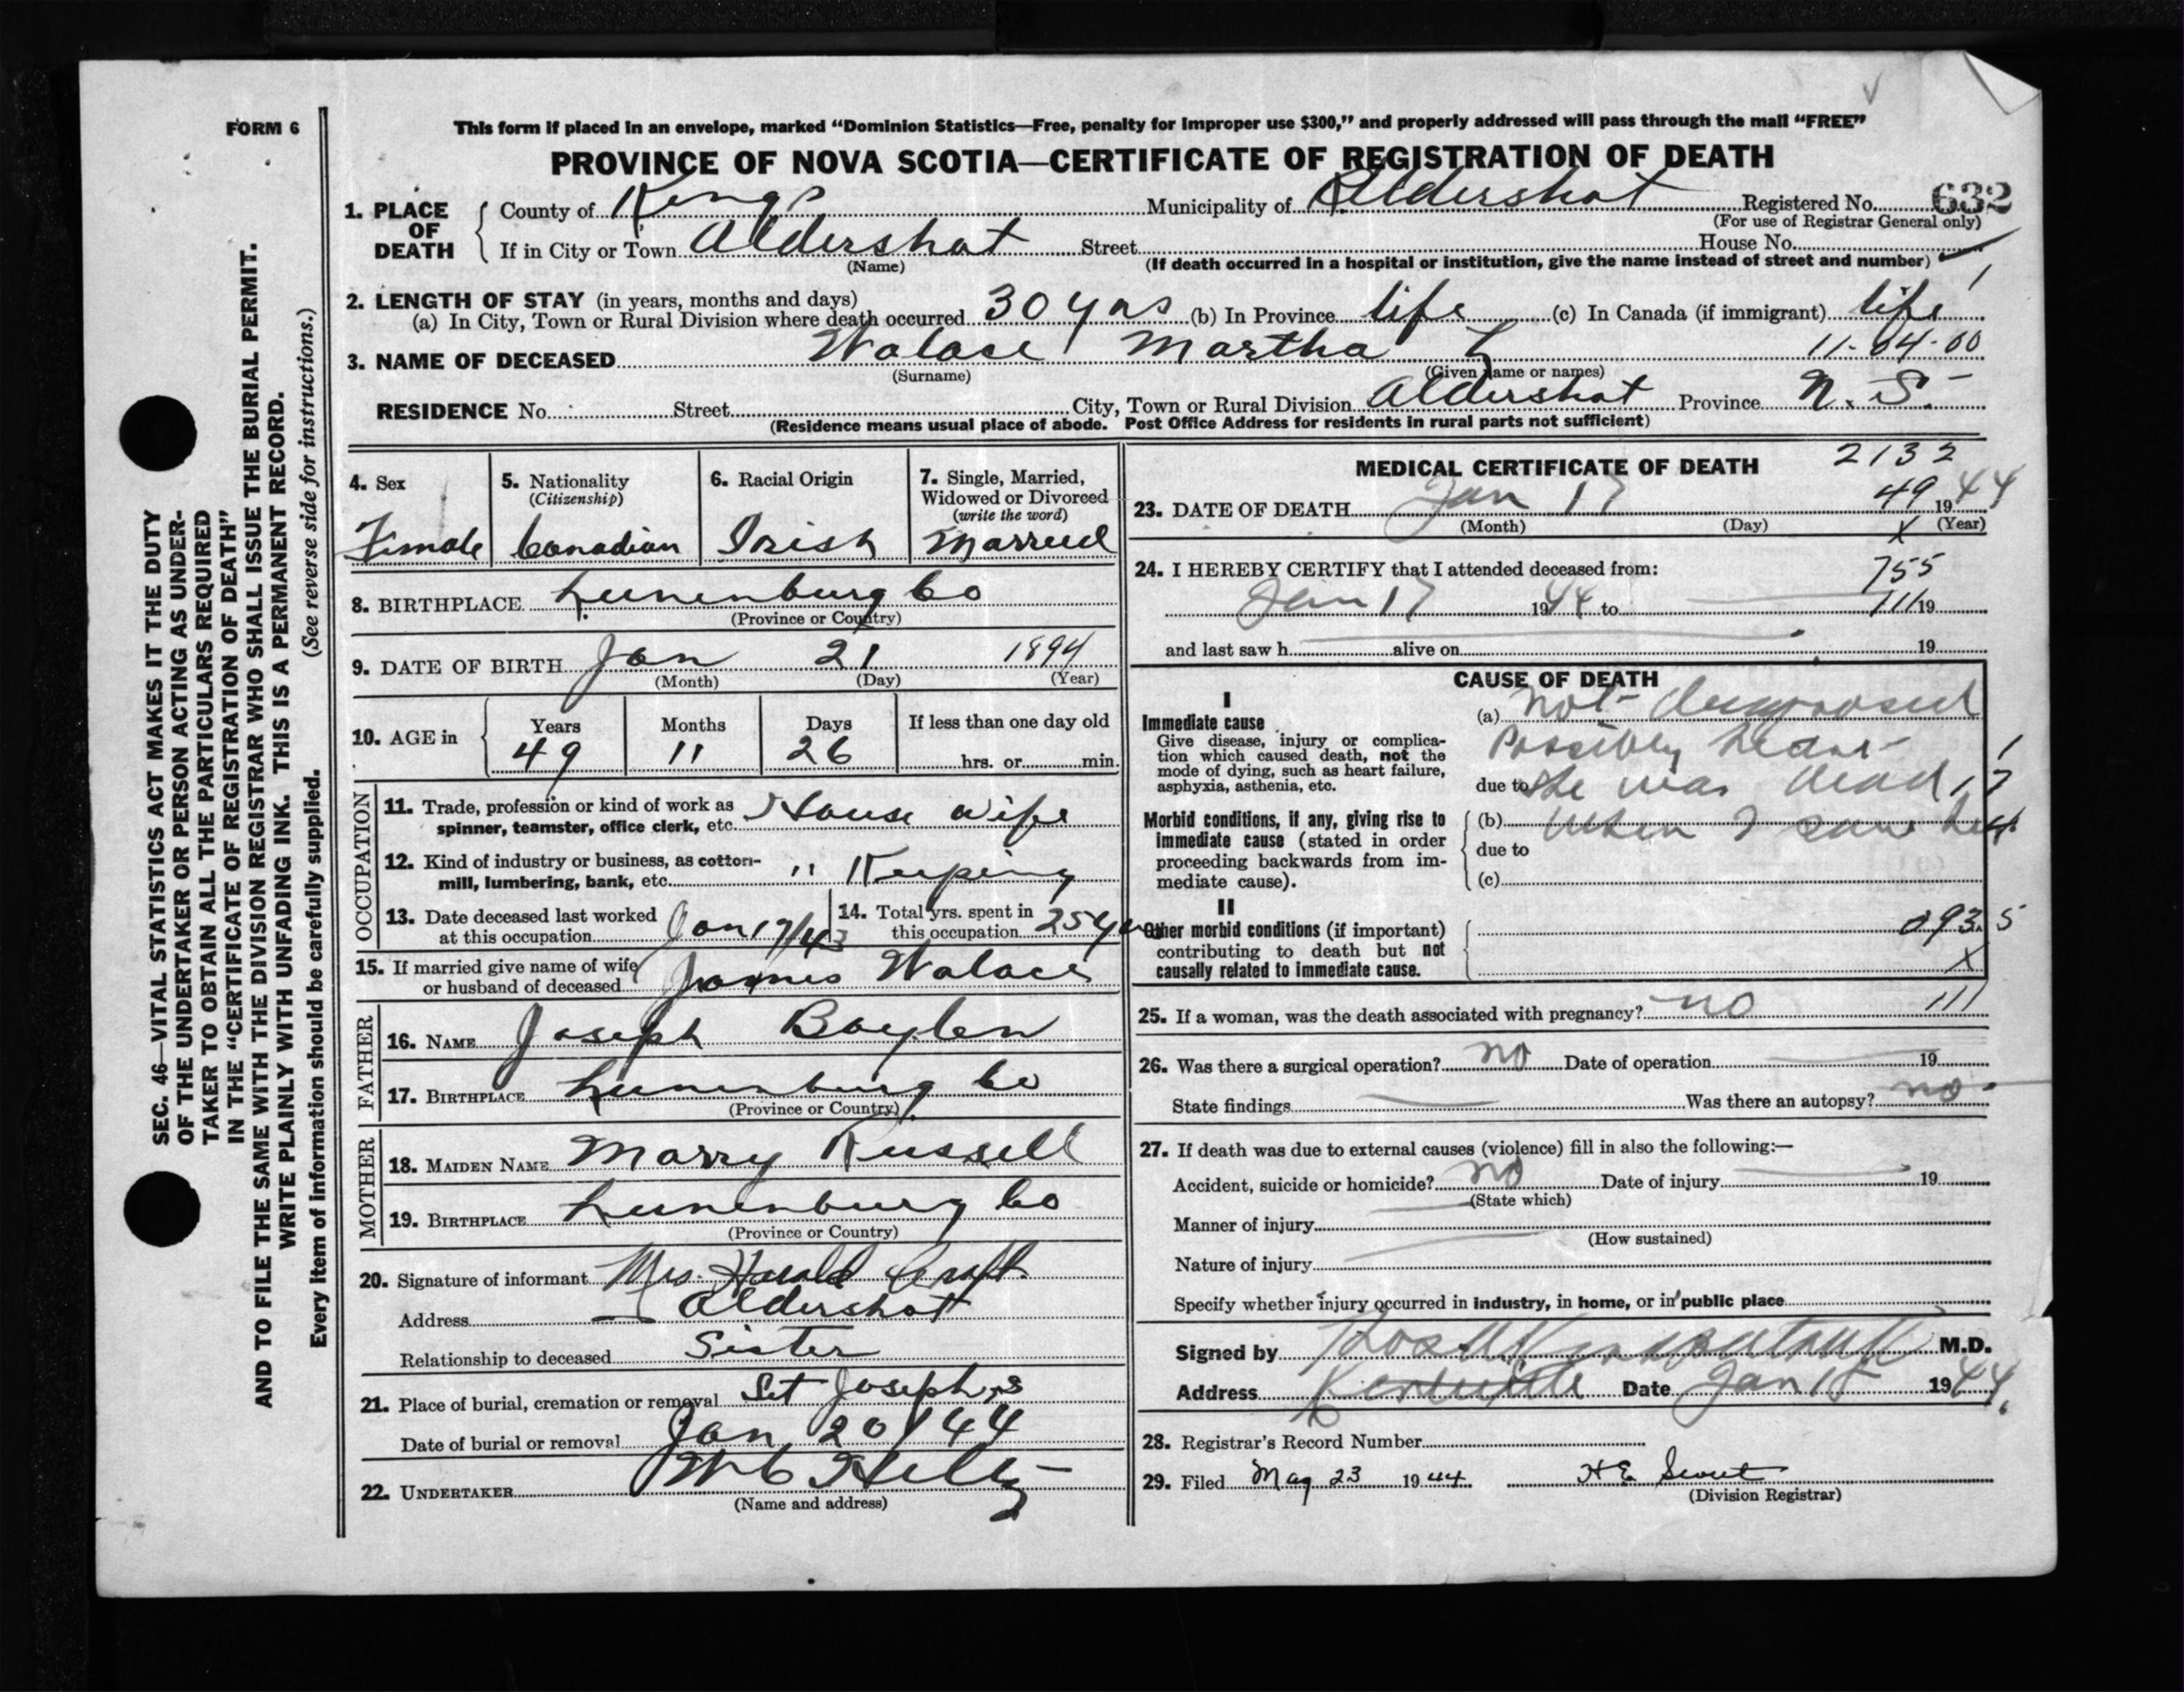 FORM 6
This form if placed in an envelope, marked “Dominion Statistics—Free, penalty for improper use $300,” and properly addressed will pass through the mail “FREE”
PROVINCE OF NOVA SCOTIA—CERTIFICATE OF REGISTRATION OF DEATH
1. PLACE OF DEATH
County of Kings Municipality of Aldershot Registered No. 632
(For use of Registrar General only)
If in City or Town Aldershot Street House No.
(Name) (If death occurred in a hospital or institution, give the name instead of street and number)
2. LENGTH OF STAY (in years, months and days)
(a) In City, Town or Rural Division where death occurred 30 yrs (b) In Province life (c) In Canada (if immigrant) life
3. NAME OF DECEASED Walace Martha L 11-04-00
(Surname) (Given name or names)
RESIDENCE No. Street City, Town or Rural Division Aldershot Province N.S.
(Residence means usual place of abode. Post Office Address for residents in rural parts not sufficient)
4. Sex Female
5. Nationality (Citizenship) Canadian
6. Racial Origin Irish
7. Single, Married, Widowed or Divorced (write the word) Married
8. BIRTHPLACE Lunenburg Co
(Province or Country)
9. DATE OF BIRTH Jan 21 1894
(Month) (Day) (Year)
10. AGE in Years 49 Months 11 Days 26 If less than one day old hrs. or min.
OCCUPATION
11. Trade, profession or kind of work as
spinner, teamster, office clerk, etc. House wife
12. Kind of industry or business, as cotton-
mill, lumbering, bank, etc. " Keeping
13. Date deceased last worked
at this occupation Jan 17/43
14. Total yrs. spent in
this occupation 25 yrs
15. If married give name of wife
or husband of deceased James Walace
FATHER
16. NAME Joseph Boylen
17. BIRTHPLACE Lunenburg Co
(Province or Country)
MOTHER
18. MAIDEN NAME Marry Russell
19. BIRTHPLACE Lunenburg Co
(Province or Country)
20. Signature of informant Mrs. Harald Craft
Address Aldershot
Relationship to deceased Sister
21. Place of burial, cremation or removal Set Joseph,s
Date of burial or removal Jan 20/44
22. UNDERTAKER
(Name and address)
MEDICAL CERTIFICATE OF DEATH 2132
49
23. DATE OF DEATH Jan 17 1944
(Month) (Day) (Year)
X
24. I HEREBY CERTIFY that I attended deceased from: 755
Jan 17 1944 to 111 19
and last saw h alive on 19
CAUSE OF DEATH
I
Immediate cause
Give disease, injury or complica-
tion which caused death, not the
mode of dying, such as heart failure,
asphyxia, asthenia, etc.
(a) Not
Possibly heart 1
due to She was dead 17
Morbid conditions, if any, giving rise to
immediate cause (stated in order
proceeding backwards from im-
mediate cause).
(b) When I saw her 4
due to
(c)
II
Other morbid conditions (if important)
contributing to death but not
causally related to immediate cause.
093 5
X
25. If a woman, was the death associated with pregnancy? no 111
26. Was there a surgical operation? no Date of operation 19
State findings Was there an autopsy? no
27. If death was due to external causes (violence) fill in also the following:—
Accident, suicide or homicide? no Date of injury 19
(State which)
Manner of injury
(How sustained)
Nature of injury
Specify whether injury occurred in industry, in home, or in public place
Signed by M.D.
Address Kentville Date Jan 18 1944.
28. Registrar's Record Number
29. Filed May 23 1944 H E
(Division Registrar)
SEC. 46—VITAL STATISTICS ACT MAKES IT THE DUTY
OF THE UNDERTAKER OR PERSON ACTING AS UNDER-
TAKER TO OBTAIN ALL THE PARTICULARS REQUIRED
IN THE “CERTIFICATE OF REGISTRATION OF DEATH”
AND TO FILE THE SAME WITH THE DIVISION REGISTRAR WHO SHALL ISSUE THE BURIAL PERMIT.
WRITE PLAINLY WITH UNFADING INK. THIS IS A PERMANENT RECORD.
(See reverse side for instructions.)
Every item of information should be carefully supplied.